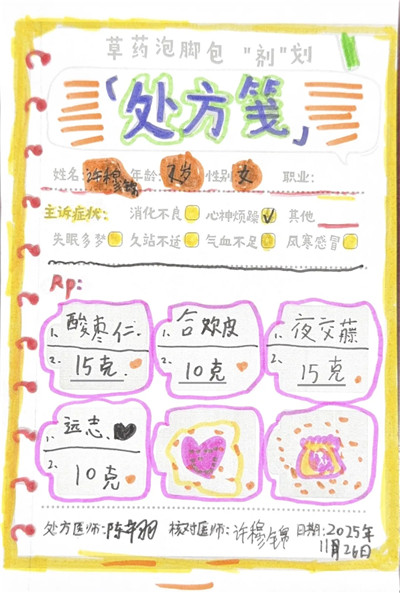 草药泡脚包 "剂"划
「处方笺」
姓名: 许穆锦 年龄: 7岁 性别: 女 职业:
主诉症状: 消化不良 心神烦躁 ✓ 其他
失眠多梦 久站不适 气血不足 风寒感冒
Rp:
1. 酸枣仁.
2. 15克
1. 合欢皮
2. 10克
1. 夜交藤
2. 15克
1. 远志.
2. 10克
处方医师: 陈羽 核对医师: 许穆锦 日期: 2025年
11月26日